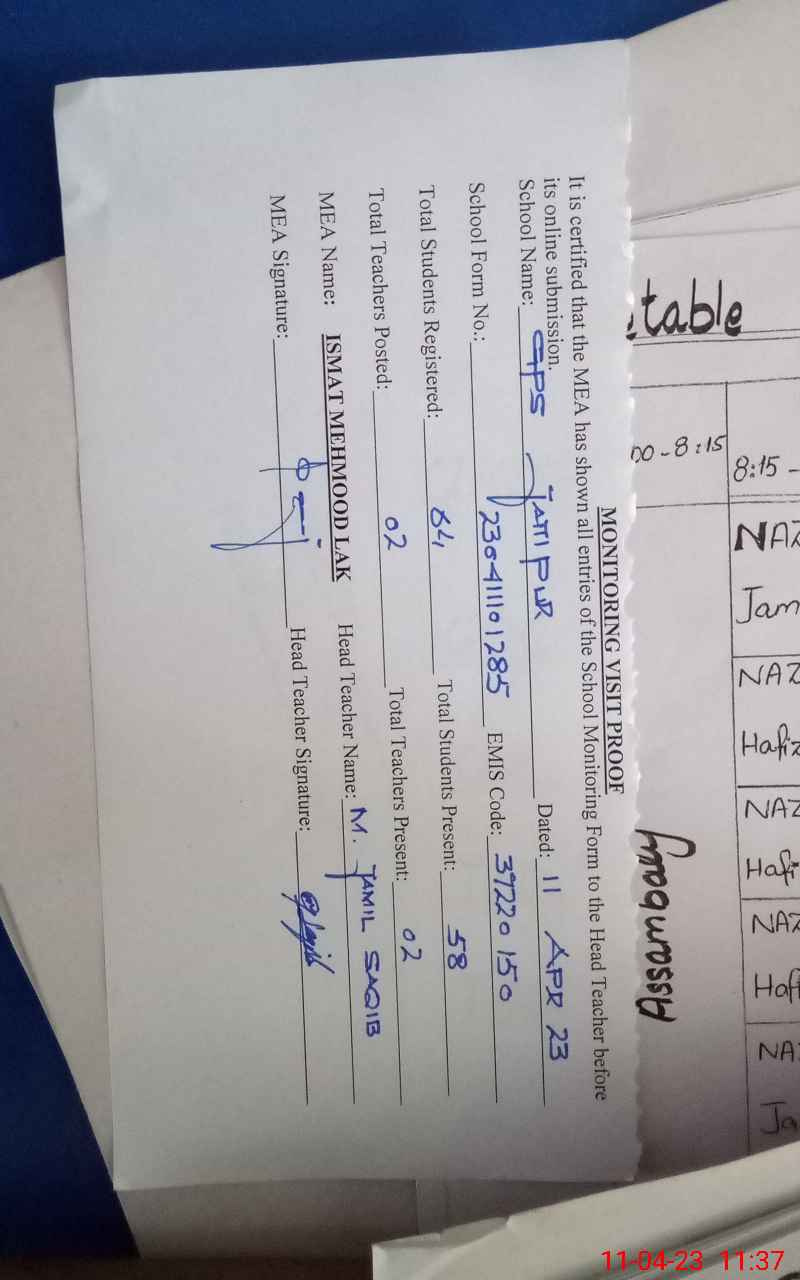 MONITORING VISIT PROOF
It is certified that the MEA has shown all entries of the School Monitoring Form to the Head Teacher before
its online submission.
School Name: GPS JATTI PUR Dated: 11 APR 23
School Form No.: 230411101285 EMIS Code: 37220150
Total Students Registered: 64 Total Students Present: 58
Total Teachers Posted: 02 Total Teachers Present: 02
MEA Name: ISMAT MEHMOOD LAK Head Teacher Name: M. JAMIL SAQIB
MEA Signature: Head Teacher Signature:
table
00-8:15
8:15 -
Assembly
NAZ
Jam
NAZ
Hafiz
NAZ
Hafi
NAZ
Haf
NA
Ja
11-04-23 11:37